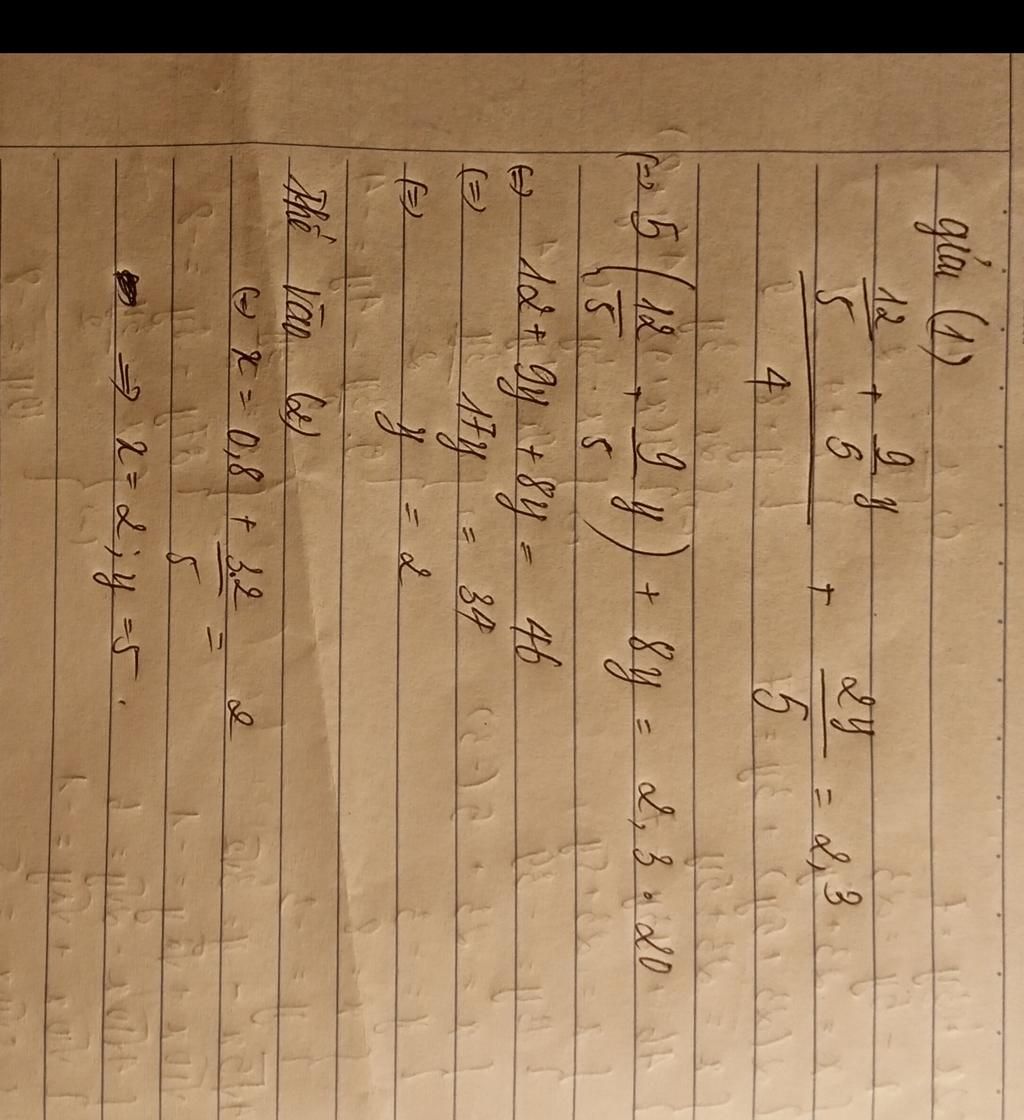 giải (1)
12/5 + 9/5 y / 4 + 2y/5 = 2,3
(=) 5 (12/5 + 9/5 y) + 8y = 2,3 . 20
(=) 12 + 9y + 8y = 46
(=) 17y = 34
(=) y = 2
Thế vào (2)
(=) x = 0,8 + 3.2/5 = 2
=> x = 2 ; y = 5 .